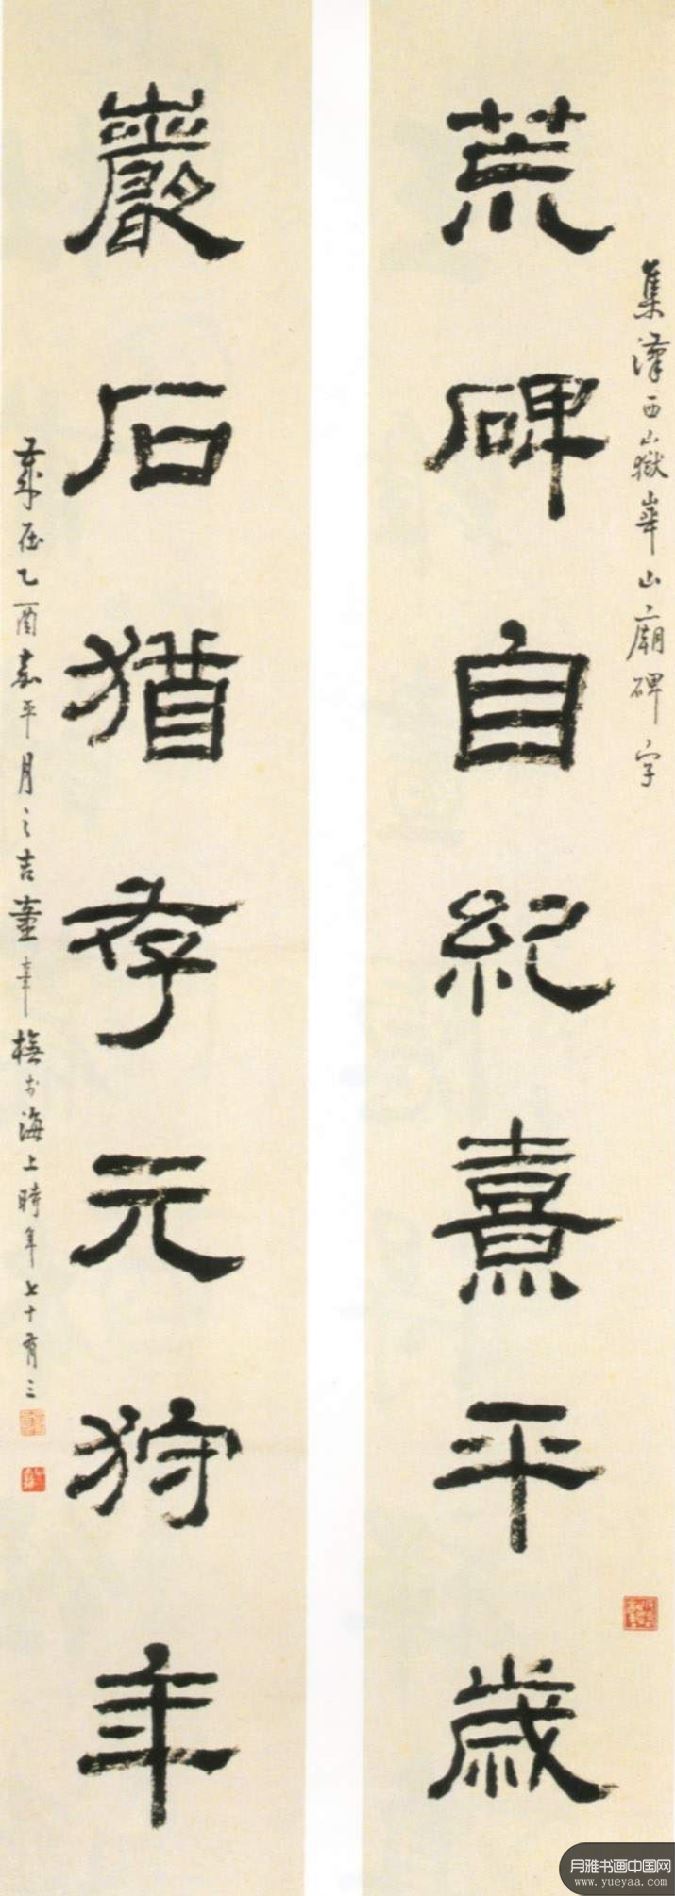 集漢西嶽華山廟碑字
荒碑自紀熹平歲
巖石猶存元狩年
歲在乙酉嘉平月之吉 海上時年七十有三
月雅书画中国网
www.yueyaa.com